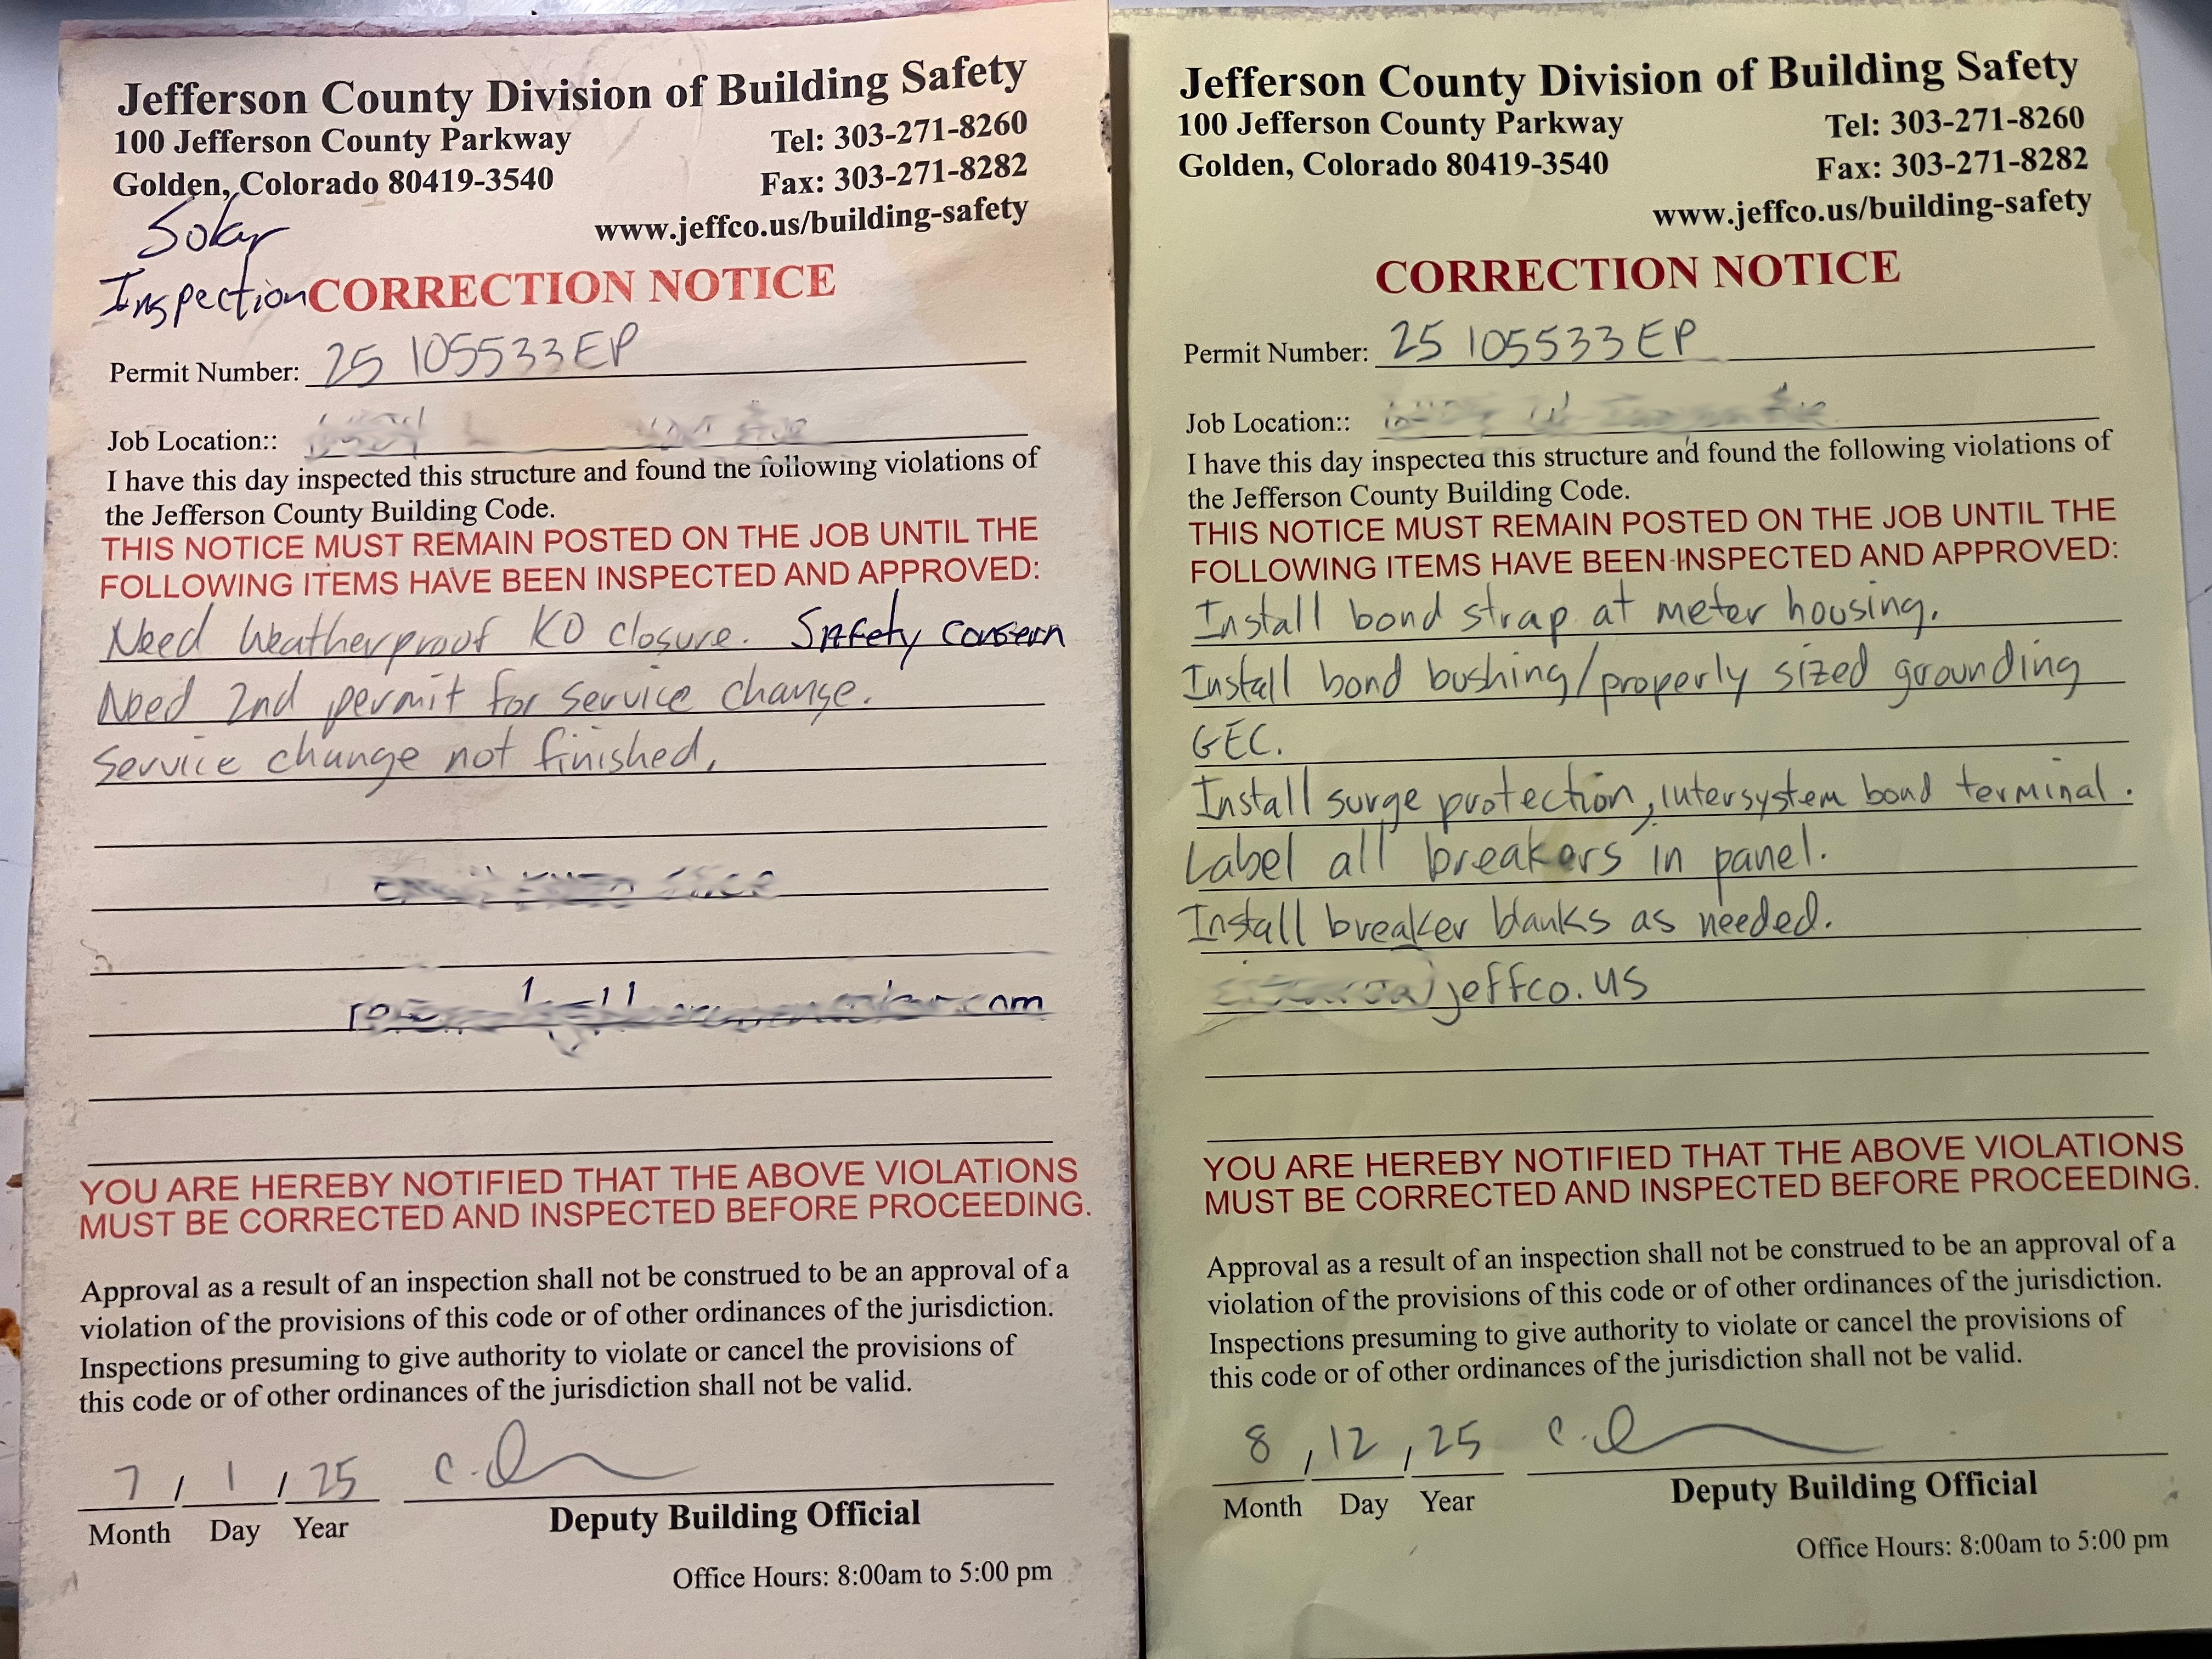 Jefferson County Division of Building Safety
100 Jefferson County Parkway Tel: 303-271-8260
Golden, Colorado 80419-3540 Fax: 303-271-8282
www.jeffco.us/building-safety
Solar
Inspection CORRECTION NOTICE
Permit Number: 25 105533EP
Job Location::
I have this day inspected this structure and found the following violations of
the Jefferson County Building Code.
THIS NOTICE MUST REMAIN POSTED ON THE JOB UNTIL THE
FOLLOWING ITEMS HAVE BEEN INSPECTED AND APPROVED:
Need Weatherproof KO closure. Safety Concern
Need 2nd permit for service change.
Service change not finished,
YOU ARE HEREBY NOTIFIED THAT THE ABOVE VIOLATIONS
MUST BE CORRECTED AND INSPECTED BEFORE PROCEEDING.
Approval as a result of an inspection shall not be construed to be an approval of a
violation of the provisions of this code or of other ordinances of the jurisdiction.
Inspections presuming to give authority to violate or cancel the provisions of
this code or of other ordinances of the jurisdiction shall not be valid.
7 / 1 / 25
Month Day Year Deputy Building Official
Office Hours: 8:00am to 5:00 pm
Jefferson County Division of Building Safety
100 Jefferson County Parkway Tel: 303-271-8260
Golden, Colorado 80419-3540 Fax: 303-271-8282
www.jeffco.us/building-safety
CORRECTION NOTICE
Permit Number: 25 105533EP
Job Location::
I have this day inspected this structure and found the following violations of
the Jefferson County Building Code.
THIS NOTICE MUST REMAIN POSTED ON THE JOB UNTIL THE
FOLLOWING ITEMS HAVE BEEN INSPECTED AND APPROVED:
Install bond strap at meter housing.
Install bond bushing/properly sized grounding
GEC.
Install surge protection, intersystem bond terminal.
Label all breakers in panel.
Install breaker blanks as needed.
jeffco.us
YOU ARE HEREBY NOTIFIED THAT THE ABOVE VIOLATIONS
MUST BE CORRECTED AND INSPECTED BEFORE PROCEEDING.
Approval as a result of an inspection shall not be construed to be an approval of a
violation of the provisions of this code or of other ordinances of the jurisdiction.
Inspections presuming to give authority to violate or cancel the provisions of
this code or of other ordinances of the jurisdiction shall not be valid.
8 / 12 / 25
Month Day Year Deputy Building Official
Office Hours: 8:00am to 5:00 pm